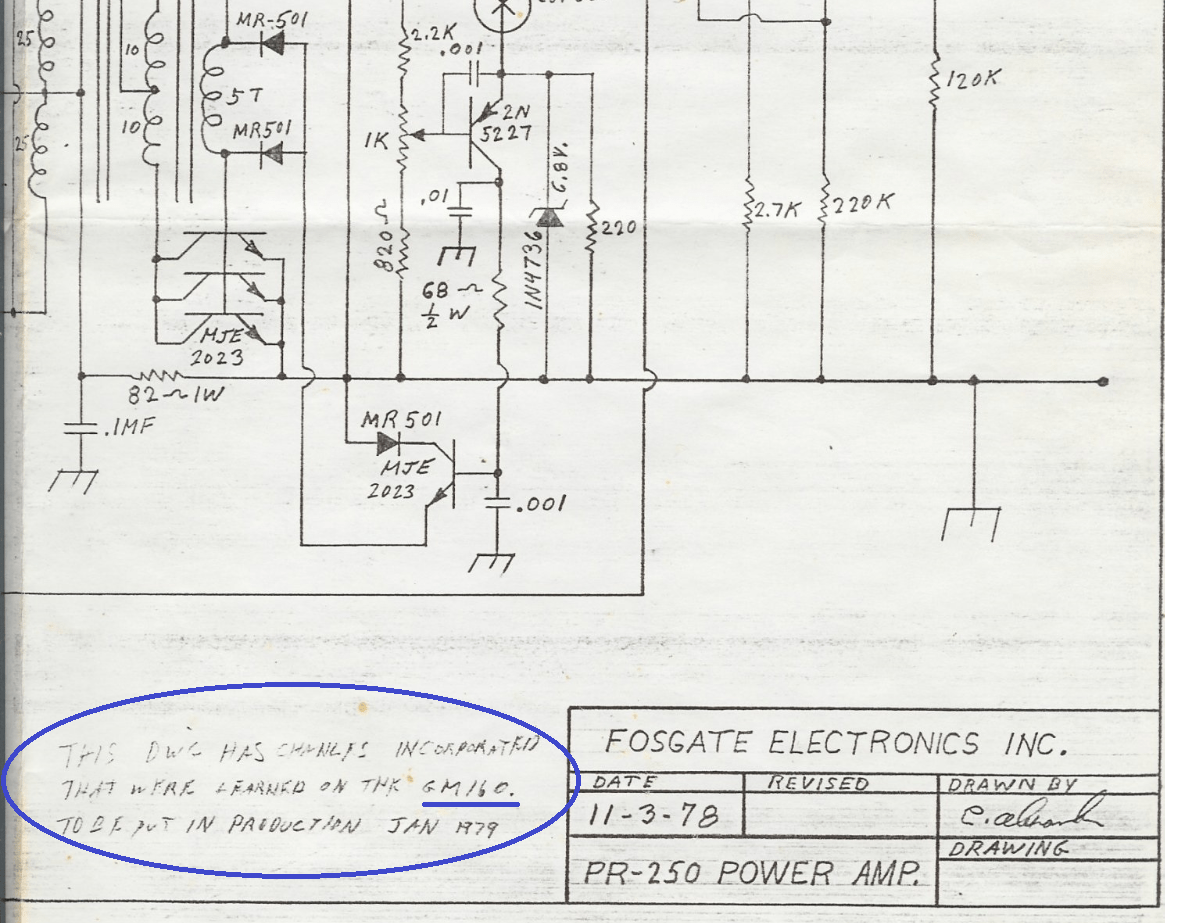 25
10
MR-501
2.2K
.001
120K
5T
2N
5227
1K
10
MR501
25
6.8V.
.01
820~
2.7K
220K
220
1N4736
68 ~
½ W
MJE
2023
82~1W
.1MF
MR 501
MJE
2023
.001
THIS DWG HAS CHANGES INCORPORATED
THAT WERE LEARNED ON THE GM160.
TO BE PUT IN PRODUCTION JAN 1979
FOSGATE ELECTRONICS INC.
DATE
REVISED
DRAWN BY
11-3-78
DRAWING
PR-250 POWER AMP.